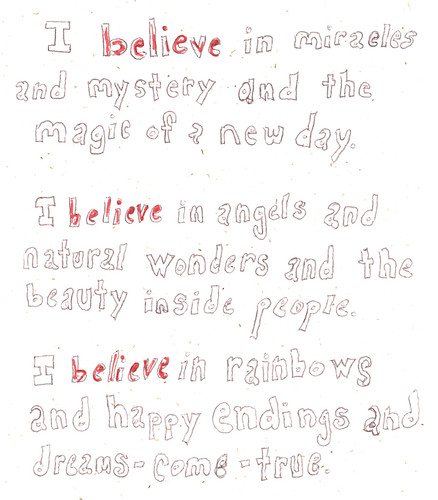 I believe in miracles
and mystery and the
magic of a new day.
I believe in angels and
natural wonders and the
beauty inside people.
I believe in rainbows
and happy endings and
dreams-come-true.